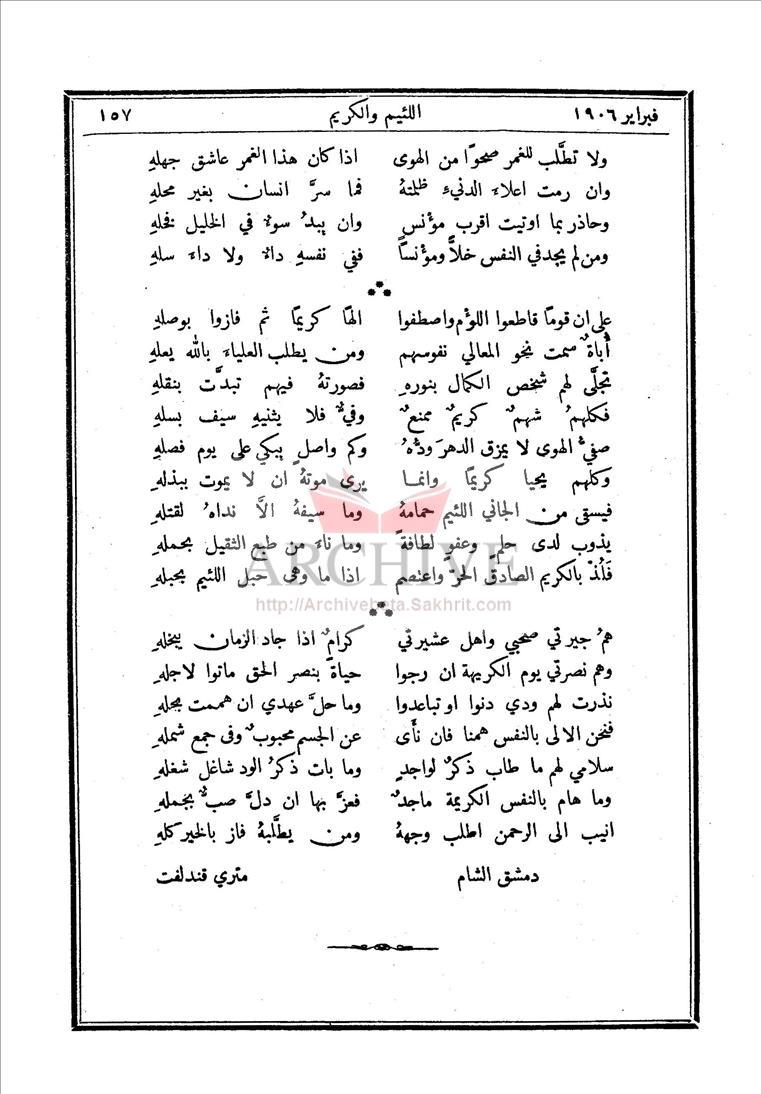 فبراير ١٩٠٦ اللئيم والكريم ١٥٧
ولا تطلَّب للغمر صحوًا من الهوى اذا كان هذا الغمر عاشق جهلهِ
وان رمت اعلاءَ الدنيءِ ظلمتهُ فما سرَّ انسان بغير محلهِ
وحاذر بما اوتيت اقرب مؤنس وان يبدُ سوءٌ في الخليل فخلهِ
ومن لم يجد في النفس خلاًّ ومؤنسًا ففي نفسهِ داءٌ ولا داءَ سلهِ
على ان قومًا قاطعوا اللؤم واصطفوا الهًا كريمًا ثم فازوا بوصلهِ
أُباةٌ سمت نحو المعالي نفوسهم ومن يطلب العلياءَ بالله يعلهِ
تجلَّى لهم شخص الكمال بنورهِ فصورتهُ فيهم تبدَّت بنقلهِ
فكلهمُ شهمٌ كريمٌ ممنعٌ وفيٌّ فلا يثنيهِ سيف بسلهِ
صفيُّ الهوى لا يمزق الدهرَ ودُّهُ وكم واصلٍ يبكي على يوم فصلهِ
وكلهم يحيا كريمًا وانما يرى موتهُ ان لا يموت ببذلهِ
فيسقى من الجاني اللئيم حمامهُ وما سيفهُ الاَّ نداهُ لقتلهِ
يذوب لدى حلمٍ وعفوٍ لطافةً وما ناءَ من طبع الثقيل بحملهِ
فَلُذْ بالكريم الصادق الحرّ واعتصم اذا ما وهى حبل اللئيم بحبلهِ
ARCHIVE
http://Archivebeta.Sakhrit.com
همُ جيرتي صحبي واهل عشيرتي كرامٌ اذا جاد الزمان ببخلهِ
وهم نصرتي يوم الكريهة ان رجوا حياةً بنصر الحق ماتوا لاجلهِ
نذرت لهم ودي دنوا او تباعدوا وما حلَّ عهدي ان هممت بحلهِ
فنحن الالى بالنفس همنا فان نأى عن الجسم محبوبٌ وفى جمع شملهِ
سلامي لهم ما طاب ذكرٌ لواجدٍ وما بات ذكرُ الود شاغل شغلهِ
وما هام بالنفس الكريمة ماجدٌ فعزَّ بها ان دلَّ صبٌّ بجملهِ
انيب الى الرحمن اطلب وجههُ ومن يطلَّبهُ فاز بالخير كلهِ
دمشق الشام متري قندلفت